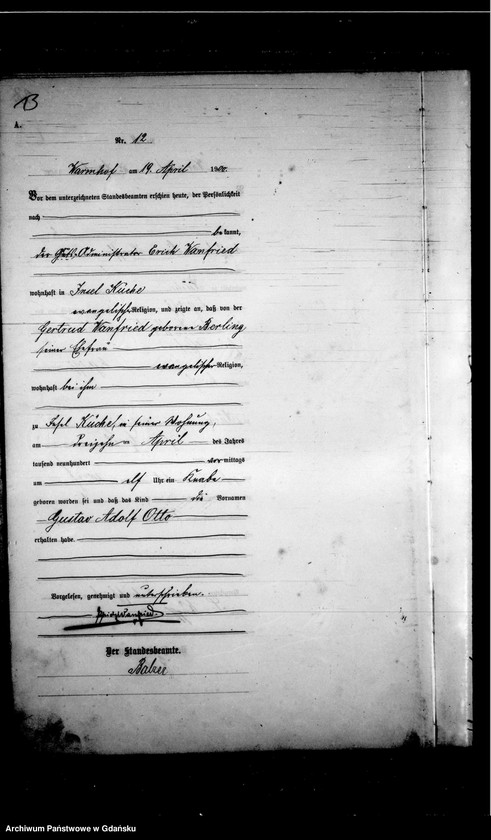 13
A.
Nr. 12
Warmhof am 19. April 190
Vor dem unterzeichneten Standesbeamten erschien heute, der Persönlichkeit
nach
bekannt,
der Guts-Administrator Erich Wanfried
wohnhaft in Insel Küche
evangelischer Religion, und zeigte an, daß von der
Gertrud Wanfried geborene Berling,
seiner Ehefrau
evangelischer Religion,
wohnhaft bei ihm
zu Insel Küche, in seiner Wohnung,
am Dreizehn April des Jahres
tausend neunhundert vormittags
um elf Uhr ein Knabe
geboren worden sei und daß das Kind die Vornamen
Gustav Adolf Otto
erhalten habe.
Vorgelesen, genehmigt und unterschrieben.
Erich Wanfried.
Der Standesbeamte.
Balzer
Archiwum Państwowe w Gdańsku